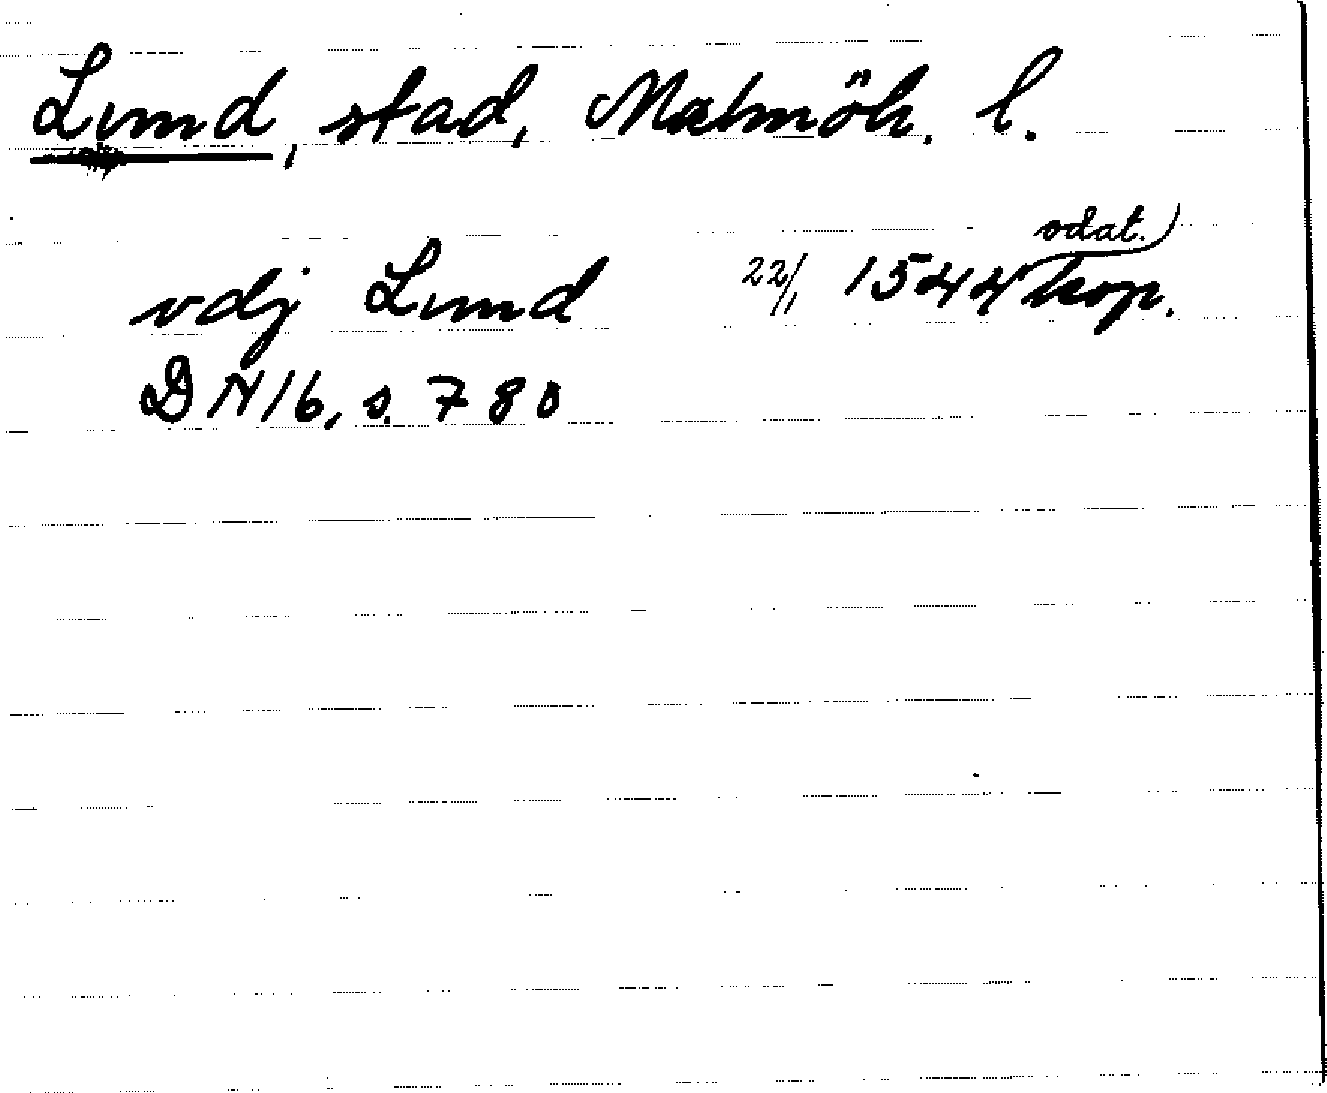 Lund, stad, Malmöh. l.
vdj Lund 22/1 1544 odat. kop.
DN16, s. 780